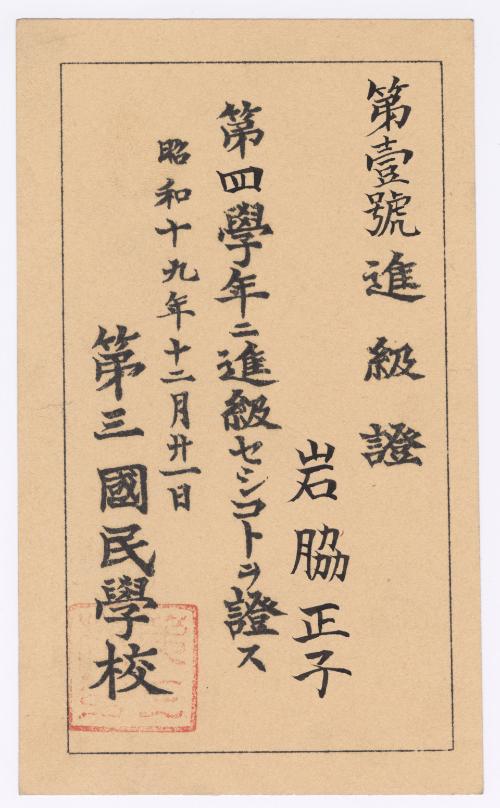 第壹號進級證
岩脇正子
第四學年ニ進級セシコトヲ證ス
昭和十九年十二月廿一日
第三國民學校